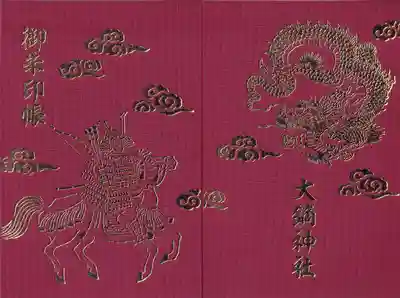 御朱印帳
大鏑神社